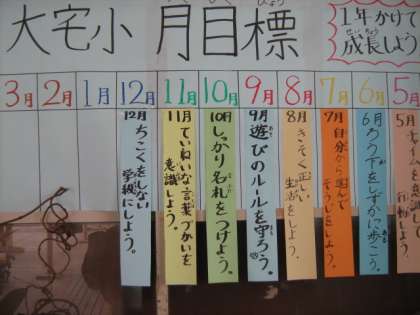 大宅小 月目標
1年かけて
成長しよう
5月
6月
7月
8月
9月
10月
11月
12月
1月
2月
3月
6月 ろう下をしずかに歩こう。
7月 自分から進んで
そうじをしよう。
8月 きそく正しい
生活をしよう。
9月 遊びのルールを守ろう。
10月 しっかり名札をつけよう。
11月 ていねいな言葉づかいを
意識しよう。
12月 ちこくをしない
学校にしよう。